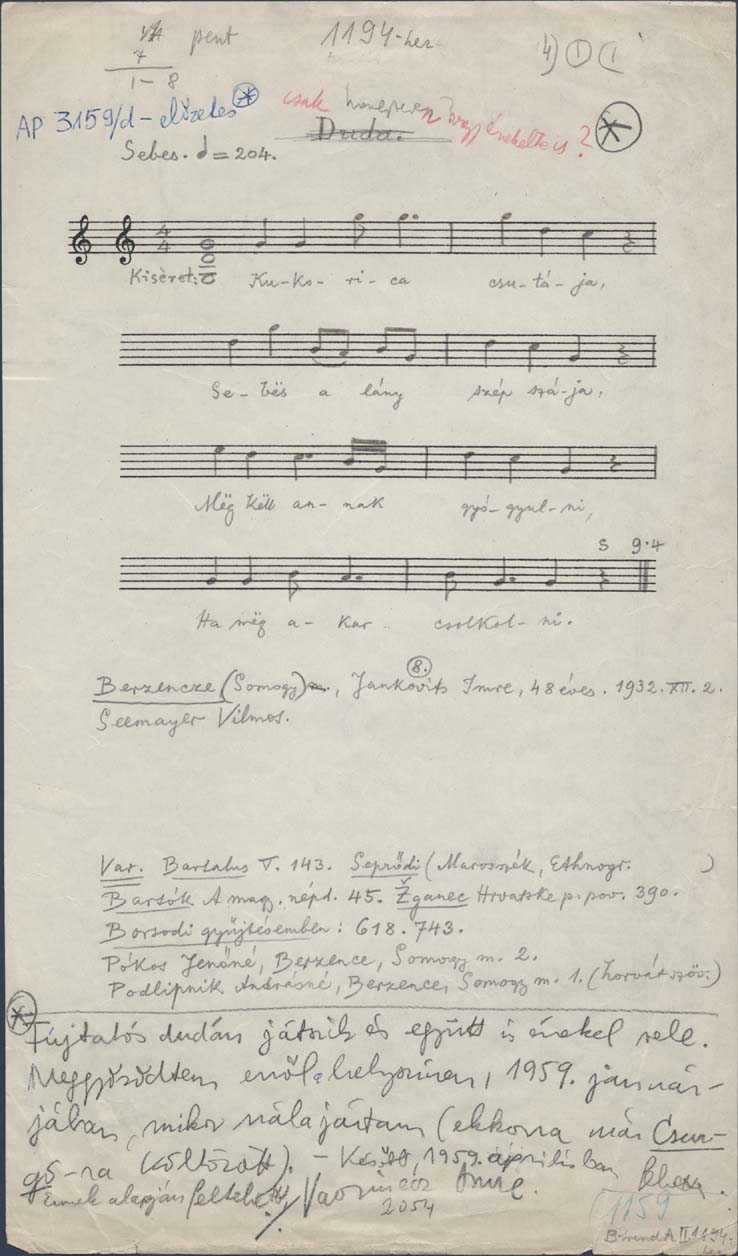 pent 1194-hez 4) 1
7
1- 8
AP 3159/d - előzetes
csak hangszeren vagy énekelte is?
Duda.
Sebes. = 204.
4
4
Kisèret: Ku-ko-ri-ca csu-tá-ja,
Se-bës a lány szép szá-ja,
Mëg këll an-nak gyó-gyul-ni,
S 9.4
Ha mëg a-kar csolkol-ni.
8.
Berzencze (Somogy), Jankovits Imre, 48 éves. 1932. XII. 2.
Seemayer Vilmos.
Var. Bartalus V. 143. Seprődi (Marosszék, Ethnogr. )
Bartók A magy. népd. 45. Žganec Hrvatske p. pov. 390.
Borsodi gyűjtésemben: 618. 743.
Pókos Jenőné, Berzence, Somogy m. 2.
Podlipnik Andrásné, Berzence, Somogy m. 1. (horvát szöv.)
Fújtatós dudán játszik és együtt is énekel vele.
Meggyőződtem erről a helyszinen, 1959. január-
jában, mikor nála jártam (ekkorra már Csur-
gó-ra költözött). - Később, 1959. áprilisban
Ennek alapján Imre.
2054
1159
II. 1194-